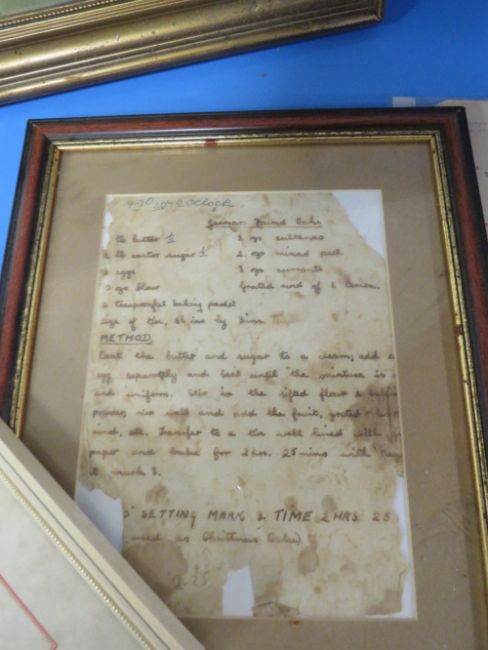 O'Clock
German Pound Cake
lb butter ½ 3 ozs sultanas
lb castor sugar ½ 2 ozs mixed peel
eggs 3 ozs currants
ozs flour Grated rind of ½ lemon
teaspoonful baking powder
size of tin, by
METHOD
Beat the butter and sugar to a cream, add e
egg separately and beat until the mixture is
and uniform. Stir in the sifted flour &
powder, mix well and add the fruit, grated
rind, etc. Transfer to a tin well lined with
paper and bake for 2 hrs. 25 mins with
mark 3.
SETTING MARK 3. TIME 2 HRS. 25
used as Christmas Cake)